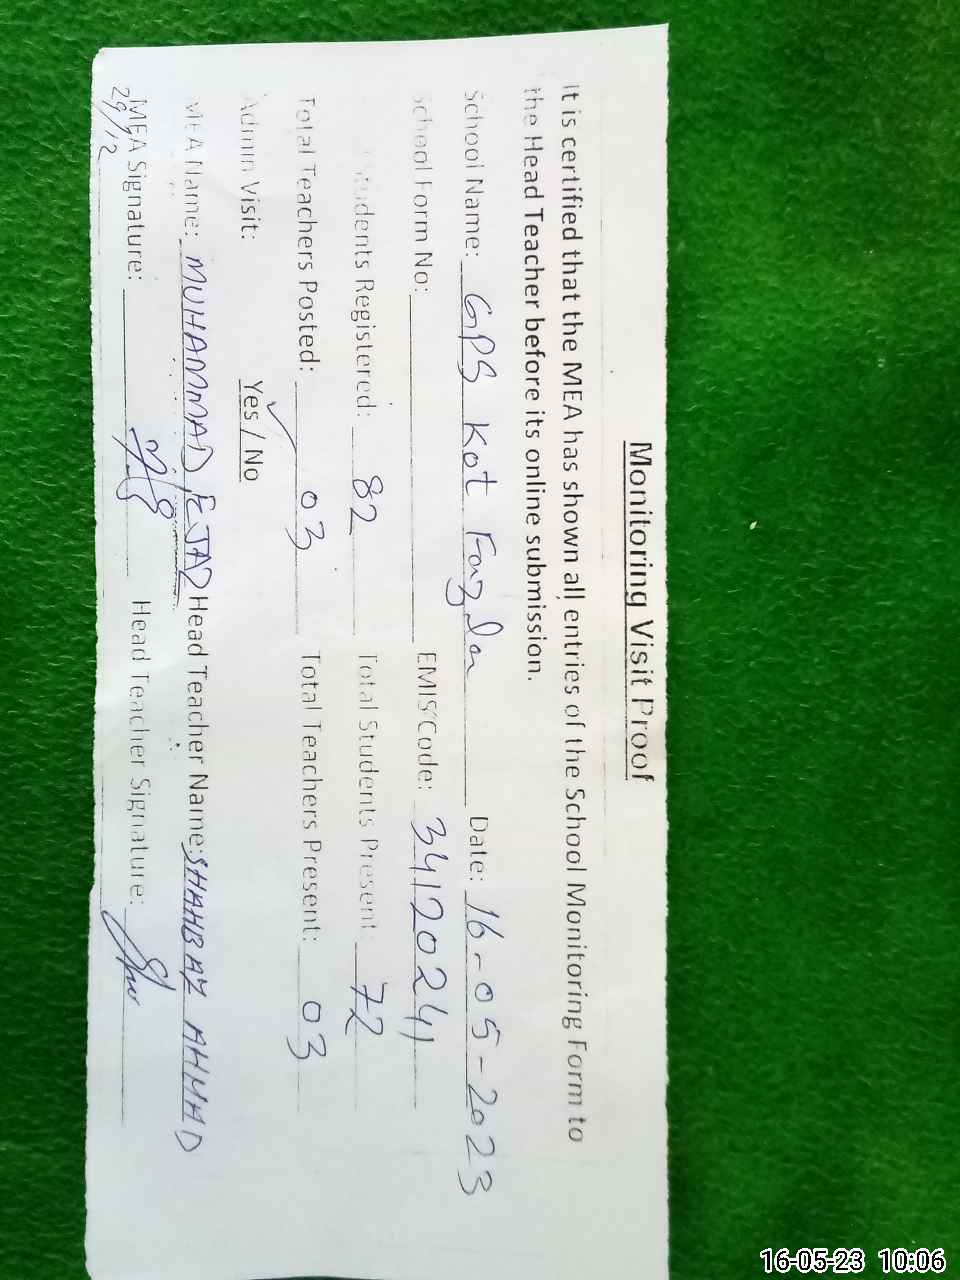 Monitoring Visit Proof
It is certified that the MEA has shown all entries of the School Monitoring Form to
the Head Teacher before its online submission.
School Name: GPS Kot Date: 16-05-2023
School Form No: EMIS Code: 34120241
Students Registered: 82 Total Students Present: 72
Total Teachers Posted: 03 Total Teachers Present: 03
Admin Visit: Yes / No
MEA Name: MUHAMMAD EJAZ Head Teacher Name: SHAHBAZ AHMAD
MEA Signature: Head Teacher Signature:
29/12
16-05-23 10:06